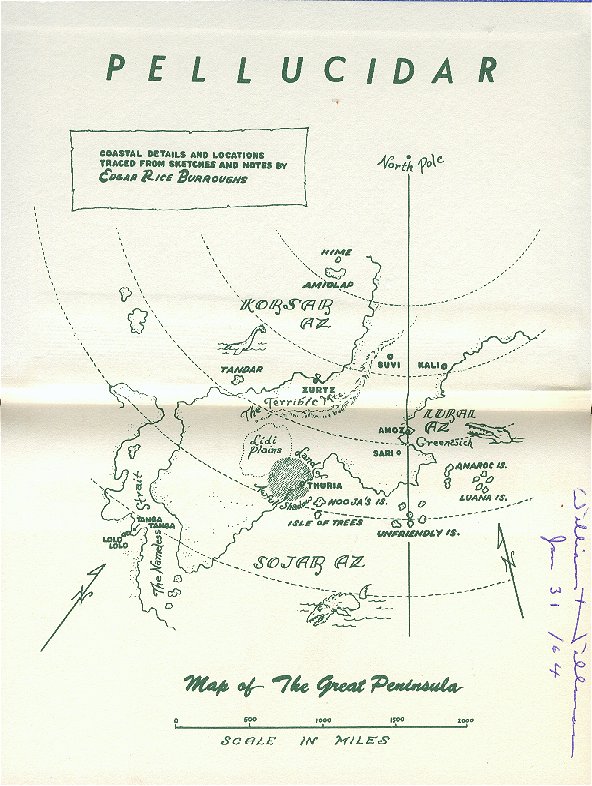 PELLUCIDAR
COASTAL DETAILS AND LOCATIONS
TRACED FROM SKETCHES AND NOTES BY
EDGAR RICE BURROUGHS
North Pole
HIME
AMIOLAP
KORSAR
AZ
TANDAR
SUVI
KALI
ZURTZ
The Terrible Mts
LURAL
AZ
AMOZ
Greenwich
SARI
Lidi
Plains
Land of
Awful Shadow
THURIA
ANAROC IS.
LUANA IS.
HOOJA'S IS.
ISLE OF TREES
UNFRIENDLY IS.
The Nameless Strait
TANGA
TANGA
LOLO
LOLO
SOJAR AZ
N
N
Map of The Great Peninsula
0 500 1000 1500 2000
SCALE IN MILES
Jan 31/64